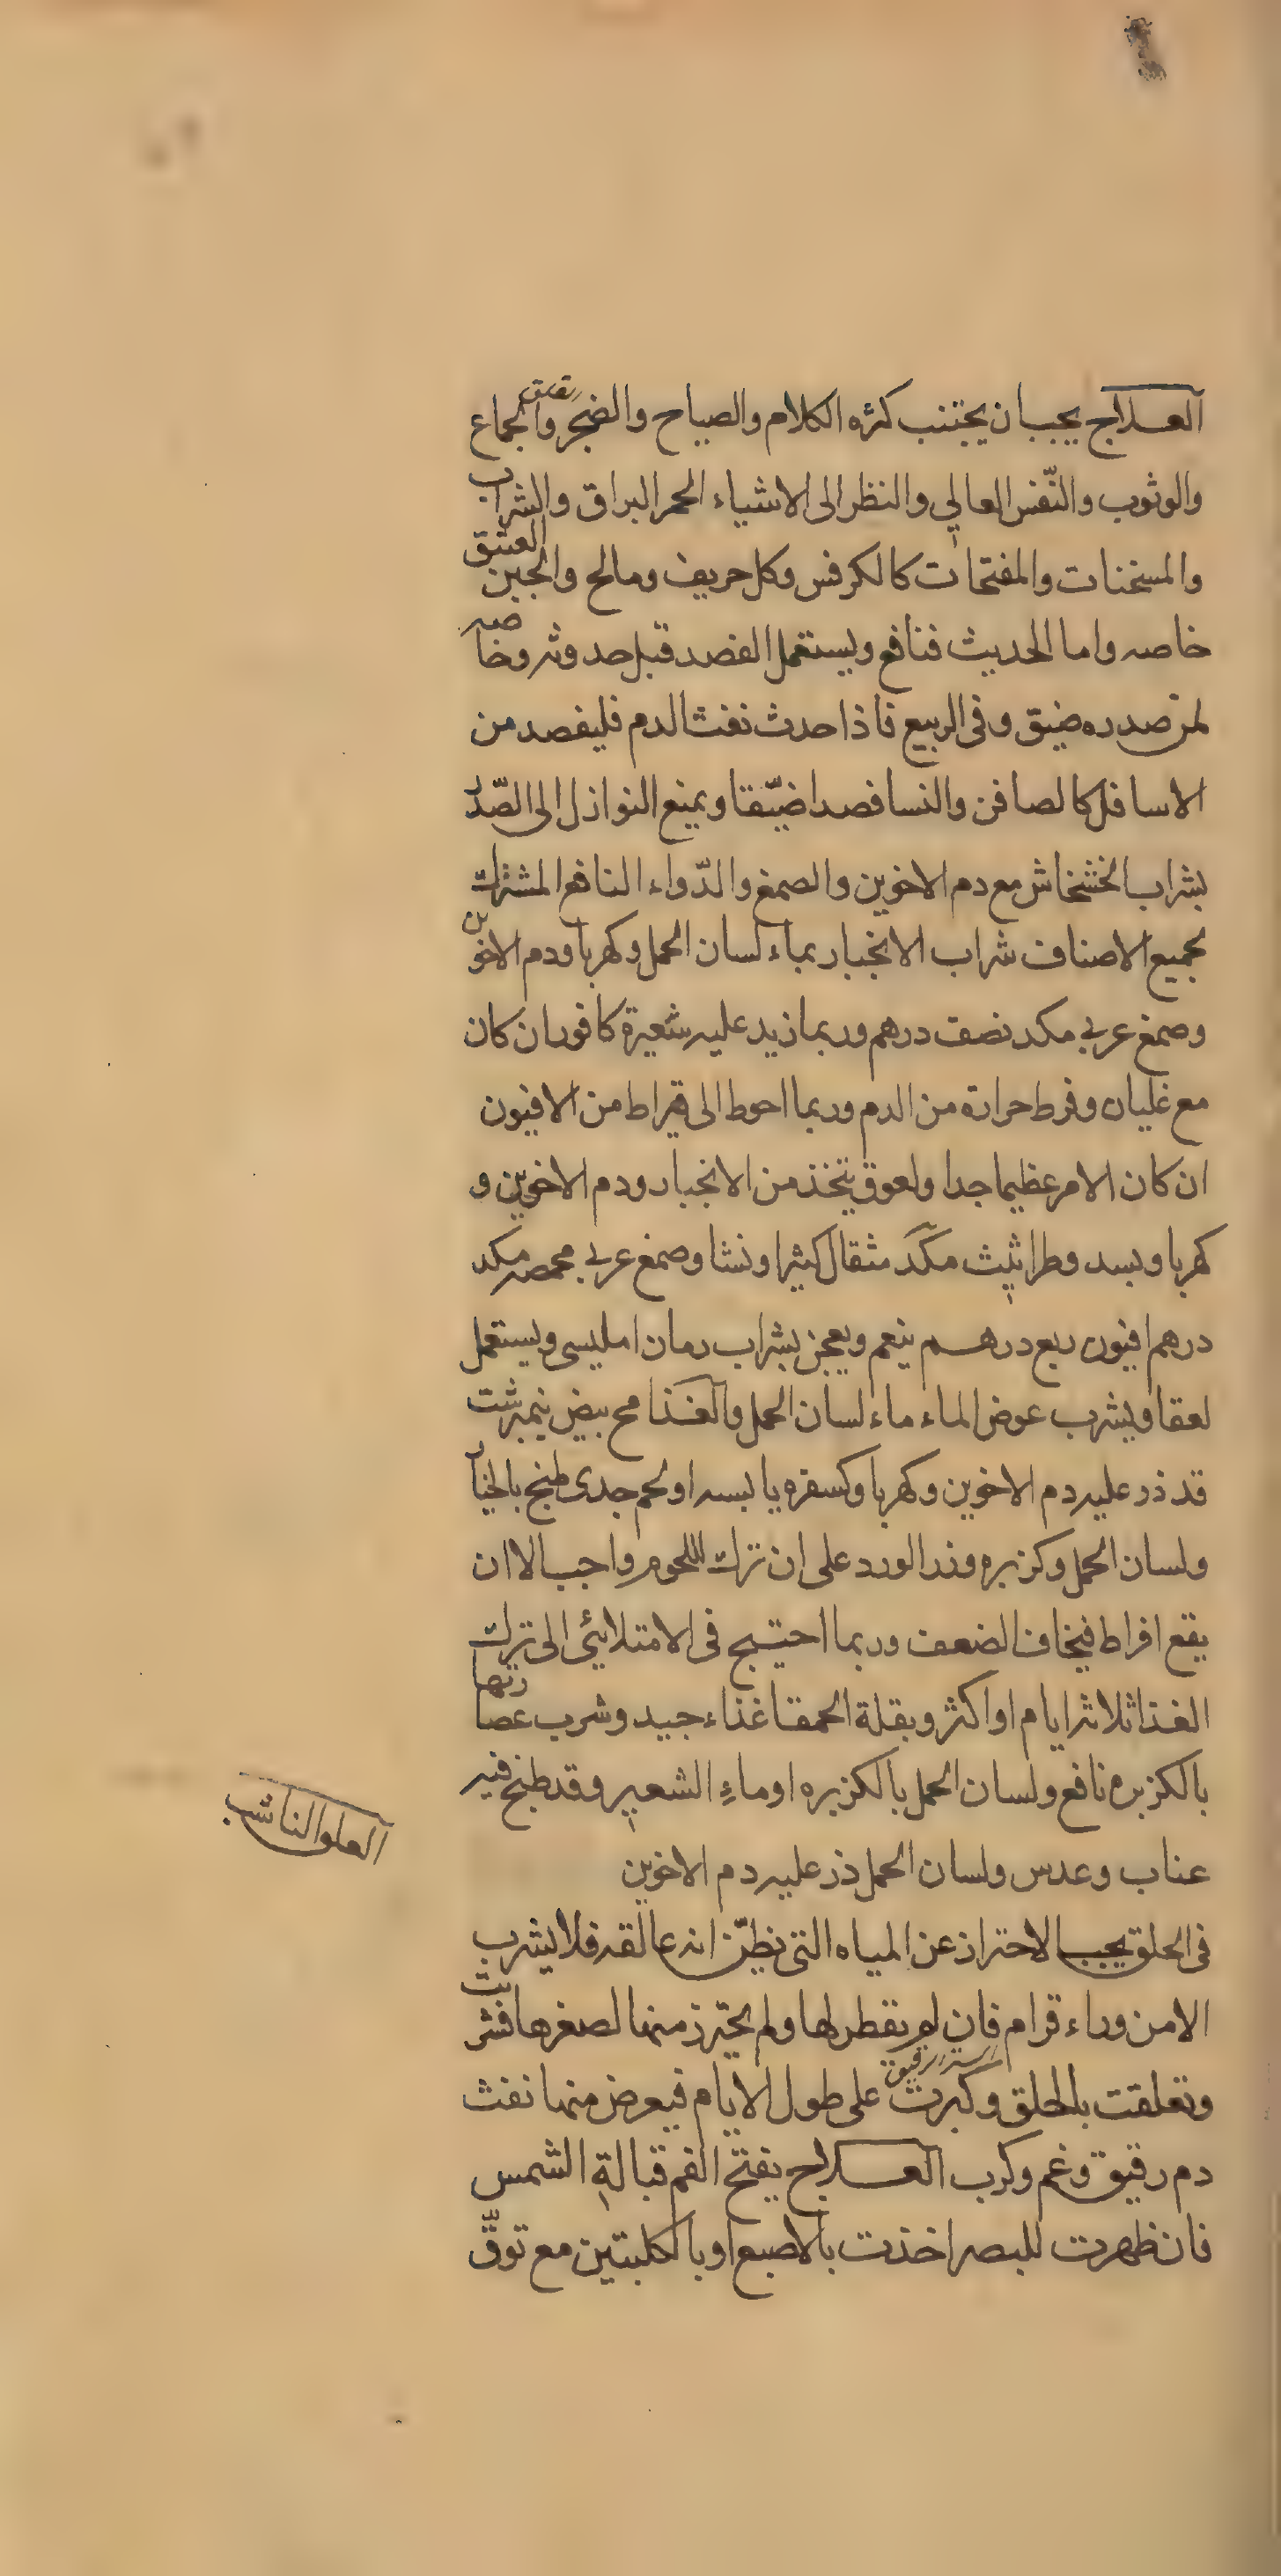 العلاج يجب ان يجتنب كثره الكلام والصياح والضجر والجماع
والوثوب والنّفس العالي والنظر الى الاشياء الحمر البراق والشراب
والمسخنات والمفتحات كالكرفس وكل حريف ومالح والجبن العتيق
خاصه واما الحديث فنافع ويستعمل الفصد قبل حدوثه وخاصه
لمن صدره ضيق وفى الربيع فاذا حدث نفث الدم فليفصد من
الاسافل كالصافن والنسا فصدا ضيّقا ويمنع النوازل الى الصّدر
بشراب الخشخاش مع دم الاخوين والصمغ والدّواء النافع المشترك
لجميع الاصناف شراب الانجبار بماء لسان الحمل وكهربا ودم الاخوين
وصمغ عربي مكد نصف درهم وربما زيد عليه شعيرة كافور ان كان
مع غليان وفرط حرارة من الدم وربما احوط الى قيراط من الافيون
ان كان الامر عظيما جدا ولعوق يتخذ من الانجبار ودم الاخوين و
كهربا وبسد وطراثيث مكد مثقال كثيرا ونشا وصمغ عربي محمصه مكد
درهم افيون ربع درهم ينعم ويعجن بشراب رمان امليسى ويستعمل
لعقا ويشرب عوض الماء ماء لسان الحمل والغذا مح بيض نيمبرشت
قد ذر عليه دم الاخوين وكهربا وكسفره يابسه او لحم جدى طبخ بالخيار
ولسان الحمل وكزبره وزر الورد على ان ترك اللحوم واجب الا ان
يقع افراط فيخاف الضعف وربما احتيج فى الامتلايئ الى ترك
الغذا ثلاثه ايام او اكثر وبقلة الحمقا غذاء جيد وشرب عصارتها
بالكزبره نافع ولسان الحمل بالكزبره او ماء الشعير وقد طبخ فيه
عناب وعدس ولسان الحمل ذر عليه دم الاخوين
العلق الناشب
فى الحلق يجب الاحتراز عن المياه التى نظنّ انه عالقه فلا يشرب
الا من وراء قرام فان لم نفطن لها ولم يحترز منها لصغرها فشربت
الستر الرقيق
وتعلقت بالحلق وكبرت على طول الايام فيعرض منها نفث
دم رقيق وغم وكرب العلاج يفتح الفم قبالة الشمس
فان ظهرت للبصر اخذت بالاصبع او بالكلبتين مع توقّ